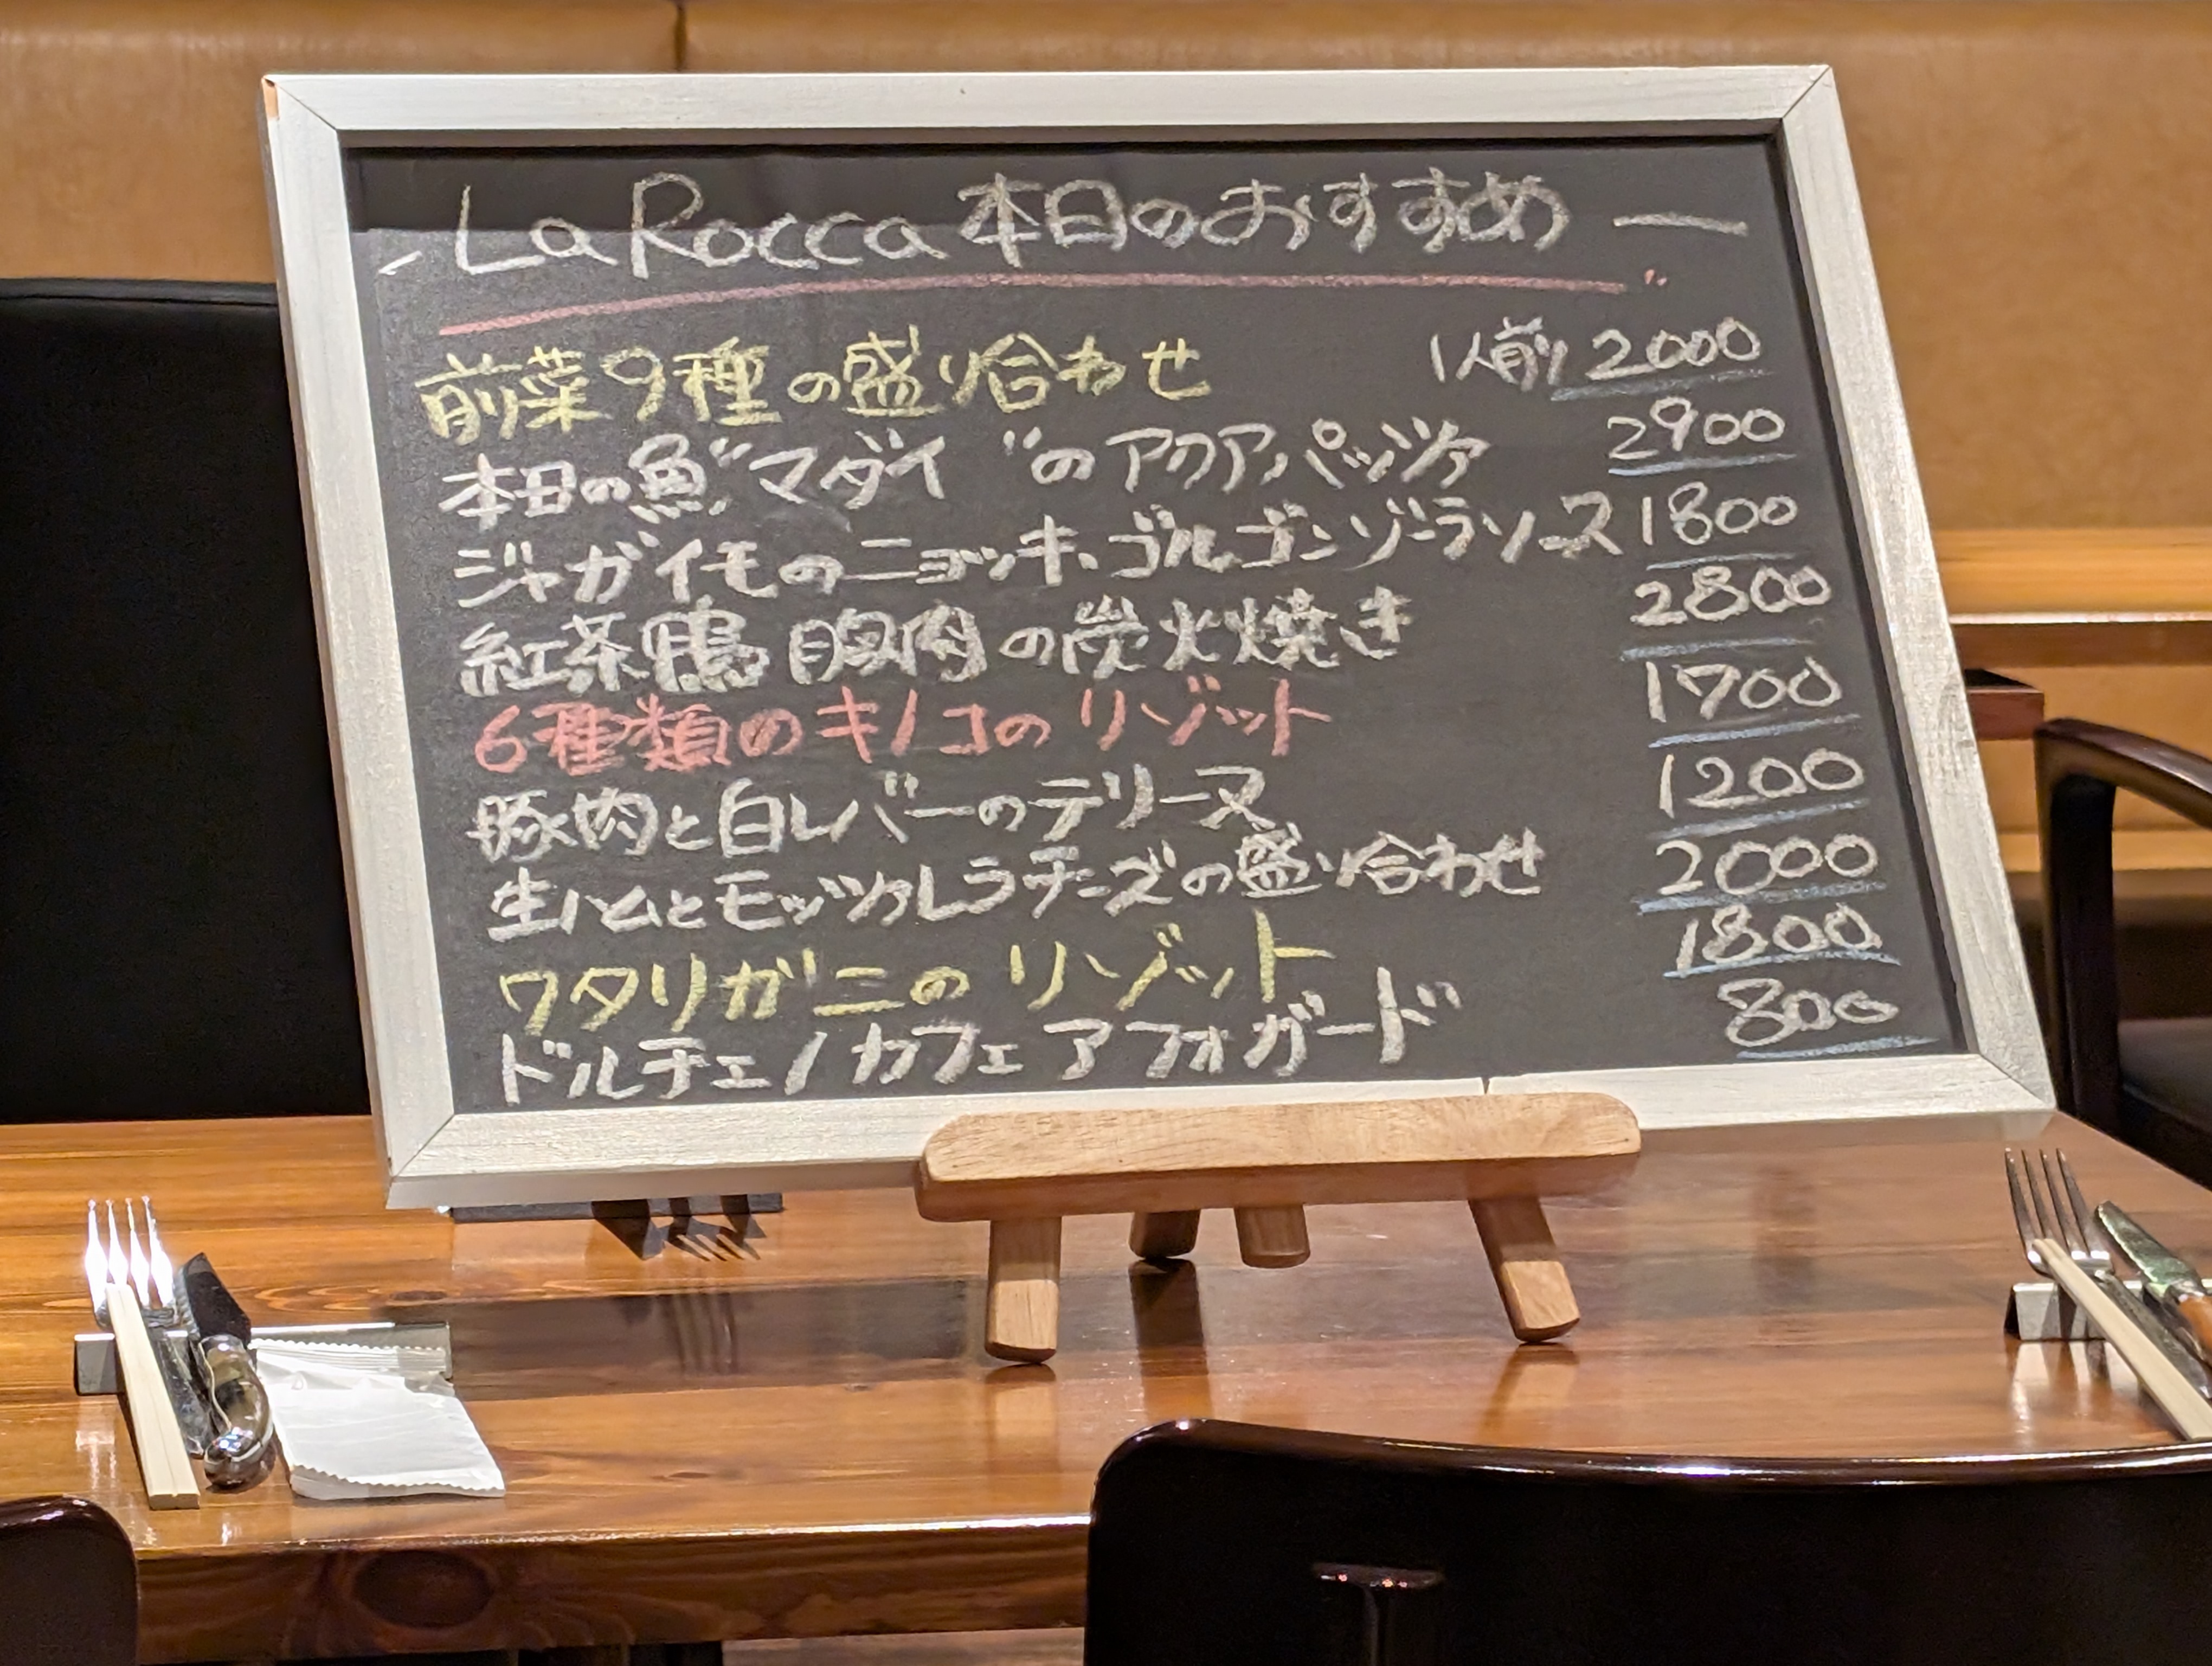 La Rocca 本日のおすすめ
前菜9種の盛り合わせ 1人前 2000
本日の魚"マダイ"のアクアパッツァ 2900
ジャガイモのニョッキ、ゴルゴンゾーラソース 1800
紅茶鴨胸肉の炭火焼き 2800
6種類のキノコのリゾット 1700
豚肉と白レバーのテリーヌ 1200
生ハムとモッツァレラチーズの盛り合わせ 2000
ワタリガニのリゾット 1800
ドルチェ / カフェアフォガード 800